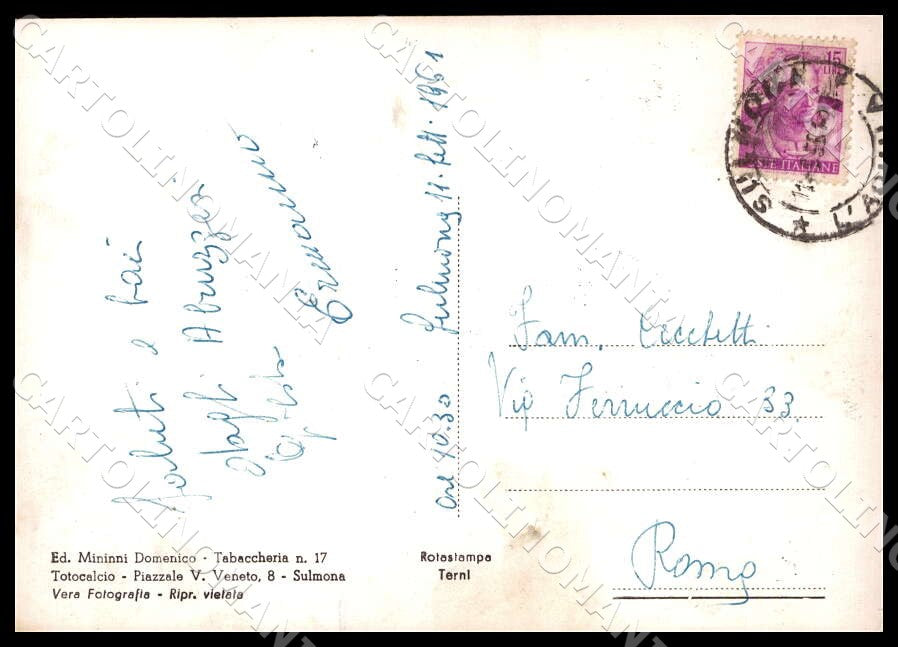 Saluti e baci
dagli Abruzzi
Ermanno
ore 10.30 Sulmona 11. sett. 1961
15
LIRE
POSTE ITALIANE
SULMONA
L'AQUILA
Fam. Cicchetti
Via Ferruccio 33
Roma
Ed. Mininni Domenico - Tabaccheria n. 17
Totocalcio - Piazzale V. Veneto, 8 - Sulmona
Vera Fotografia - Ripr. vietata
Rotastampa
Terni
CARTOLINOMANIA